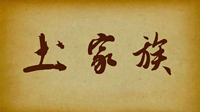 土家族